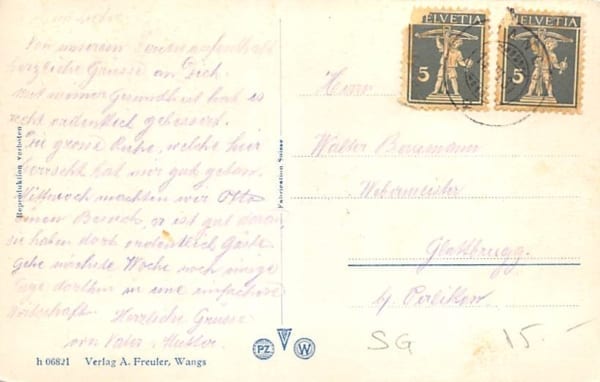 Von unserem Ferienaufenthalt
herzliche Grüsse an Dich.
Mit meiner Gesundheit hat es
recht ordentlich gebessert.
Die grosse Ruhe, welche hier
herrscht hat mir gut getan.
Mittwoch machten wir Otto
einen Besuch, er ist gut daran,
sie haben dort ordentlich Gäste
gehe nächste Woche noch einige
Tage dorthin in eine einfachere
Wirtschaft. Herzliche Grüsse
von Vater & Mutter.
Reproduktion verboten
Fabrication Suisse
h 06821 Verlag A. Freuler, Wangs
PZ
W
HELVETIA
5
HELVETIA
5
Herrn
Walter
Webermeister
Glattbrugg.
b/ Oerlikon
SG 15.-